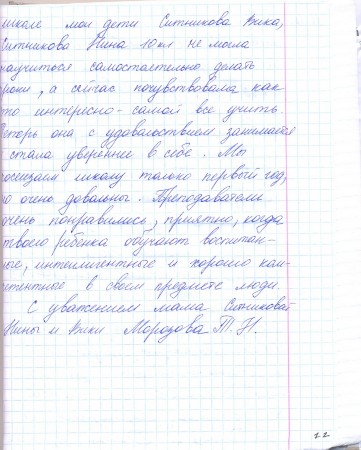 школе мои дети Ситникова Вика,
Ситникова Нина 10кл не могла
научиться самостоятельно делать
уроки, а сейчас почувствовала как
это интересно - самой все учить.
Теперь она с удовольствием занимается
и стала увереннее в себе. Мы
посещаем школу только первый год,
но очень довольны. Преподаватели
очень понравились, приятно, когда
твоего ребенка обучают воспитан-
ные, интеллигентные и хорошо ком-
петентные в своем предмете люди.
С уважением мама Ситниковой
Нины и Вики Морозова Т.Н.
22